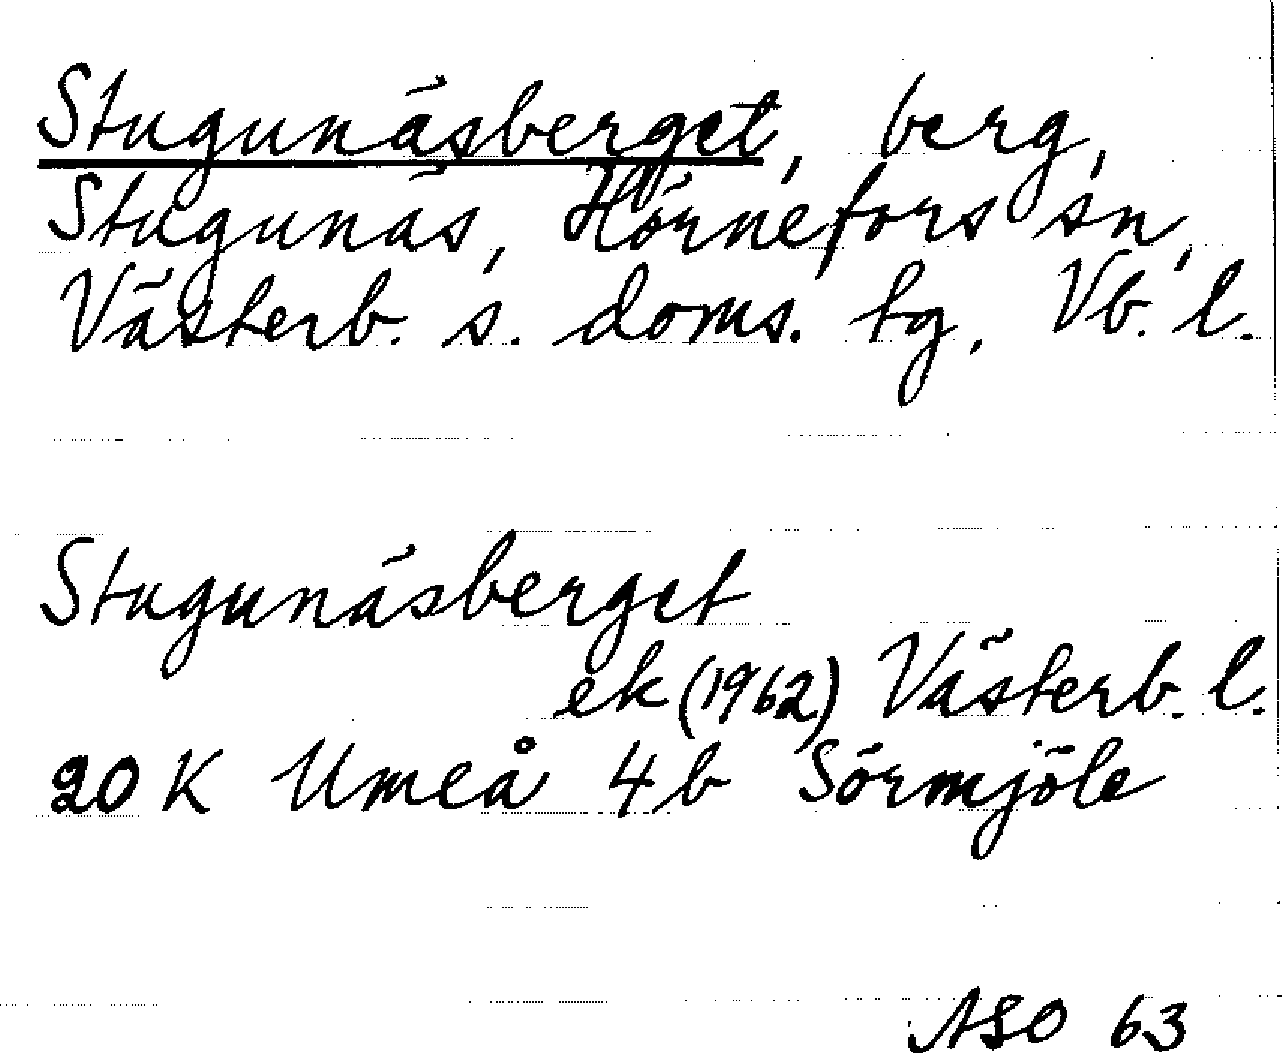 Stugunäsberget, berg,
Stugunäs, Hörnefors sn,
Västerb. s. doms. tg, Vb. l.
Stugunäsberget
ek (1962) Västerb. l.
20 K Umeå 4 b Sörmjöle
ASO 63